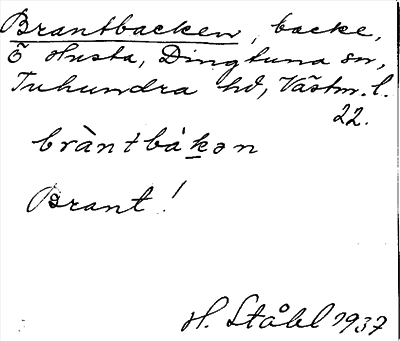 Brantbacken, backe,
Ö Husta, Dingtuna sn,
Tuhundra hd, Västm. l.
22.
bràntbákən
Brant!
H. Ståhl 1937